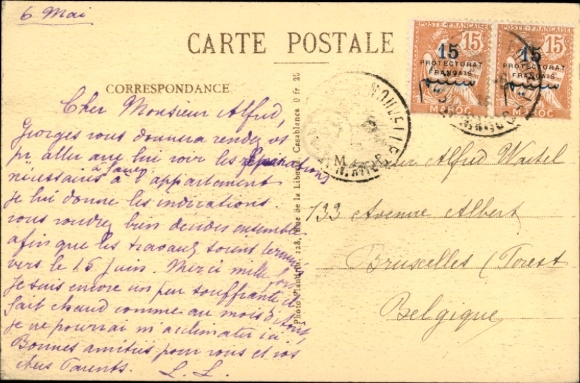 6 Mai
CARTE POSTALE
CORRESPONDANCE
Cher Monsieur Alfred,
Georges vous donnera rendez vs
pr aller avec lui voir les réparations
nécessaires à faire
à l'appartement
je lui donne les indications.
vous voudrez bien décider ensemble
afin que les travaux soient terminés
vers le 15 Juin. Merci mille fois
je suis encore un peu souffrante il
fait chaud comme au mois d'Août,
je ne pourrai m'acclimater ici.
Bonnes amitiés pour vous et vos
chers Parents.
L. L.
POSTE FRANÇAISE
15
15
PROTECTORAT
FRANÇAIS
MAROC
POSTE FRANÇAISE
15
15
PROTECTORAT
FRANÇAIS
MAROC
Alfred Wastel
133 Avenue Albert
Bruxelles (Forest
Belgique
Photo 128, rue de la Liberté, Casablanca